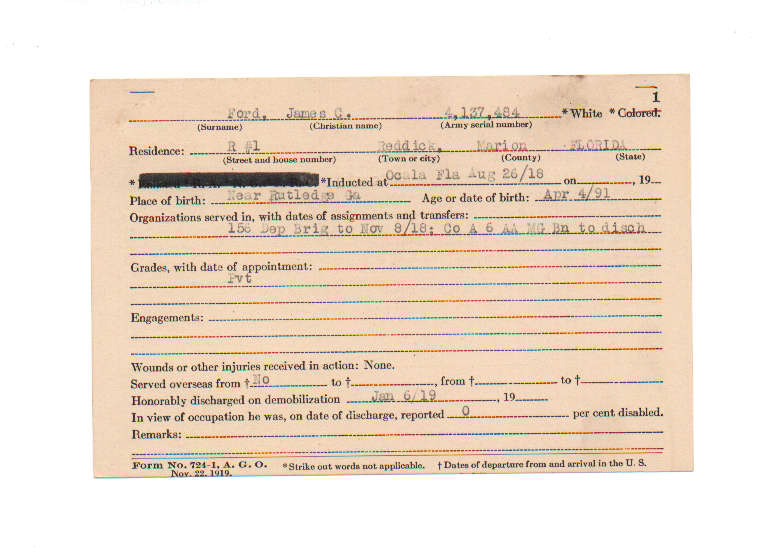 1
Ford, James C. 4,137,484 * White * Colored.
(Surname) (Christian name) (Army serial number)
Residence: R #1 Reddick, Marion FLORIDA
(Street and house number) (Town or city) (County) (State)
* *Inducted at Ocala Fla Aug 26/18 on , 19
Place of birth: Near Rutledge Ga Age or date of birth: Apr 4/91
Organizations served in, with dates of assignments and transfers:
158 Dep Brig to Nov 8/18; Co A 6 AA MG Bn to disch
Grades, with date of appointment:
Pvt
Engagements:
Wounds or other injuries received in action: None.
Served overseas from † No to † , from † to †
Honorably discharged on demobilization Jan 6/19 , 19
In view of occupation he was, on date of discharge, reported 0 per cent disabled.
Remarks:
Form No. 724-1, A. G. O. *Strike out words not applicable. † Dates of departure from and arrival in the U. S.
Nov. 22, 1919.